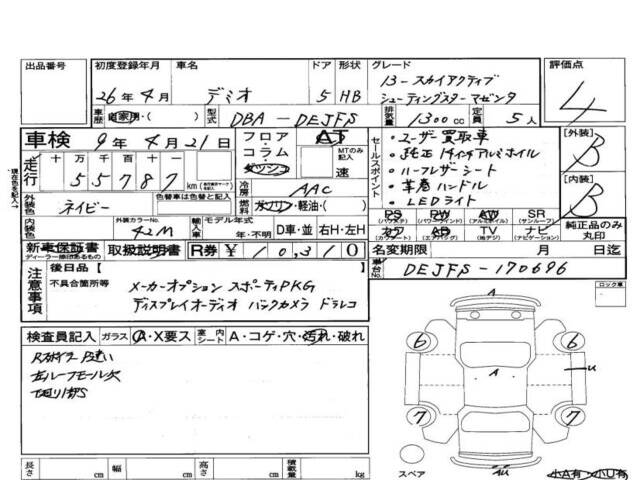 出品番号
初度登録年月 車名 ドア 形状 グレード 評価点
26年 4月 デミオ 5 HB 13-スカイアクティブ
シューティングスターマゼンタ
4
車歴 自家用・( ) 型式 DBA-DEJFS 排気量 1300cc 定員 5人
車検 9年 4月 21日
フロア・コラム・ダッシュ AT MTのみ記入 速
走行 十万千百十一
55787 km
現在色を記入
冷房 AAC
外装色 ネイビー 色替車は色替と記入 燃料 ガソリン・軽油・( )
内装色 外装カラーNo. 42M 輸入車 モデル年式 年・不明 D車・並 右H・左H
セールスポイント
・ユーザー買取車
・純正14インチアルミホイル
・ハーフレザーシート
・革巻ハンドル
・LEDライト
[外装] B
[内装] B
PS (パワステ) PW (パワーウインド) AW (アルミホイル) SR (サンルーフ)
カワ (カワシート) AB (エアバッグ) TV (地デジ) ナビ (ナビゲーション)
純正品のみ丸印
新車保証書 ディーラー捺印あるもの 取扱説明書 R券 ¥10,310
名変期限 月 日迄
車台No. DEJFS-170696
注意事項
後日品[ ]
不具合箇所等 メーカーオプション スポーティPKG
ディスプレイオーディオ バックカメラ ドラレコ
ロック車
検査員記入 ガラス A・X要ス 室内シート A・コゲ・穴・汚れ・破れ
左ルーフモール欠
下廻りサビS
A
6 6
A U
7 7
AU
スペア
小A有・小U有
長さ cm 幅 cm 高さ cm 積載量 kg